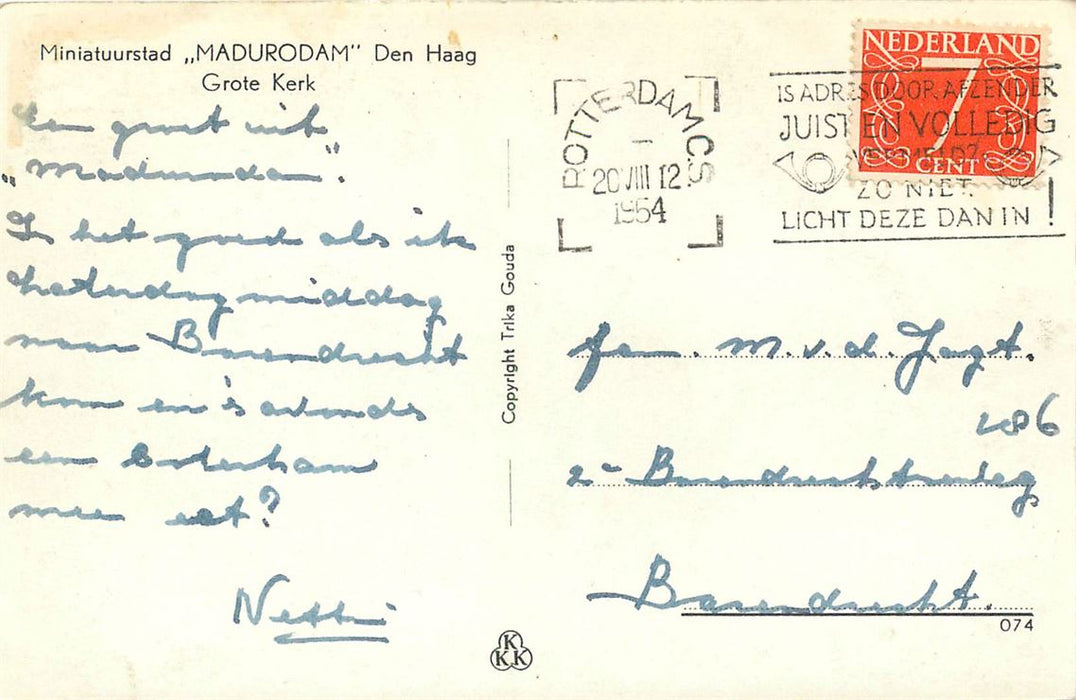 Miniatuurstad „MADURODAM" Den Haag
Grote Kerk
Een groet uit
„Madurodam".
Is het goed als ik
Zaterdagmiddag
naar Barendrecht
kom en 's avonds
een boterham
mee eet?
Nettie
Copyright Trika Gouda
KKK
ROTTERDAM C.S
20 VIII 12
1954
IS ADRES DOOR AFZENDER
JUIST EN VOLLEDIG
VERMELD?
ZO NIET.
LICHT DEZE DAN IN !
NEDERLAND
7
CENT
fam. M. v. d. Jagt.
286
2e Barendrechtseweg
Barendrecht.
074